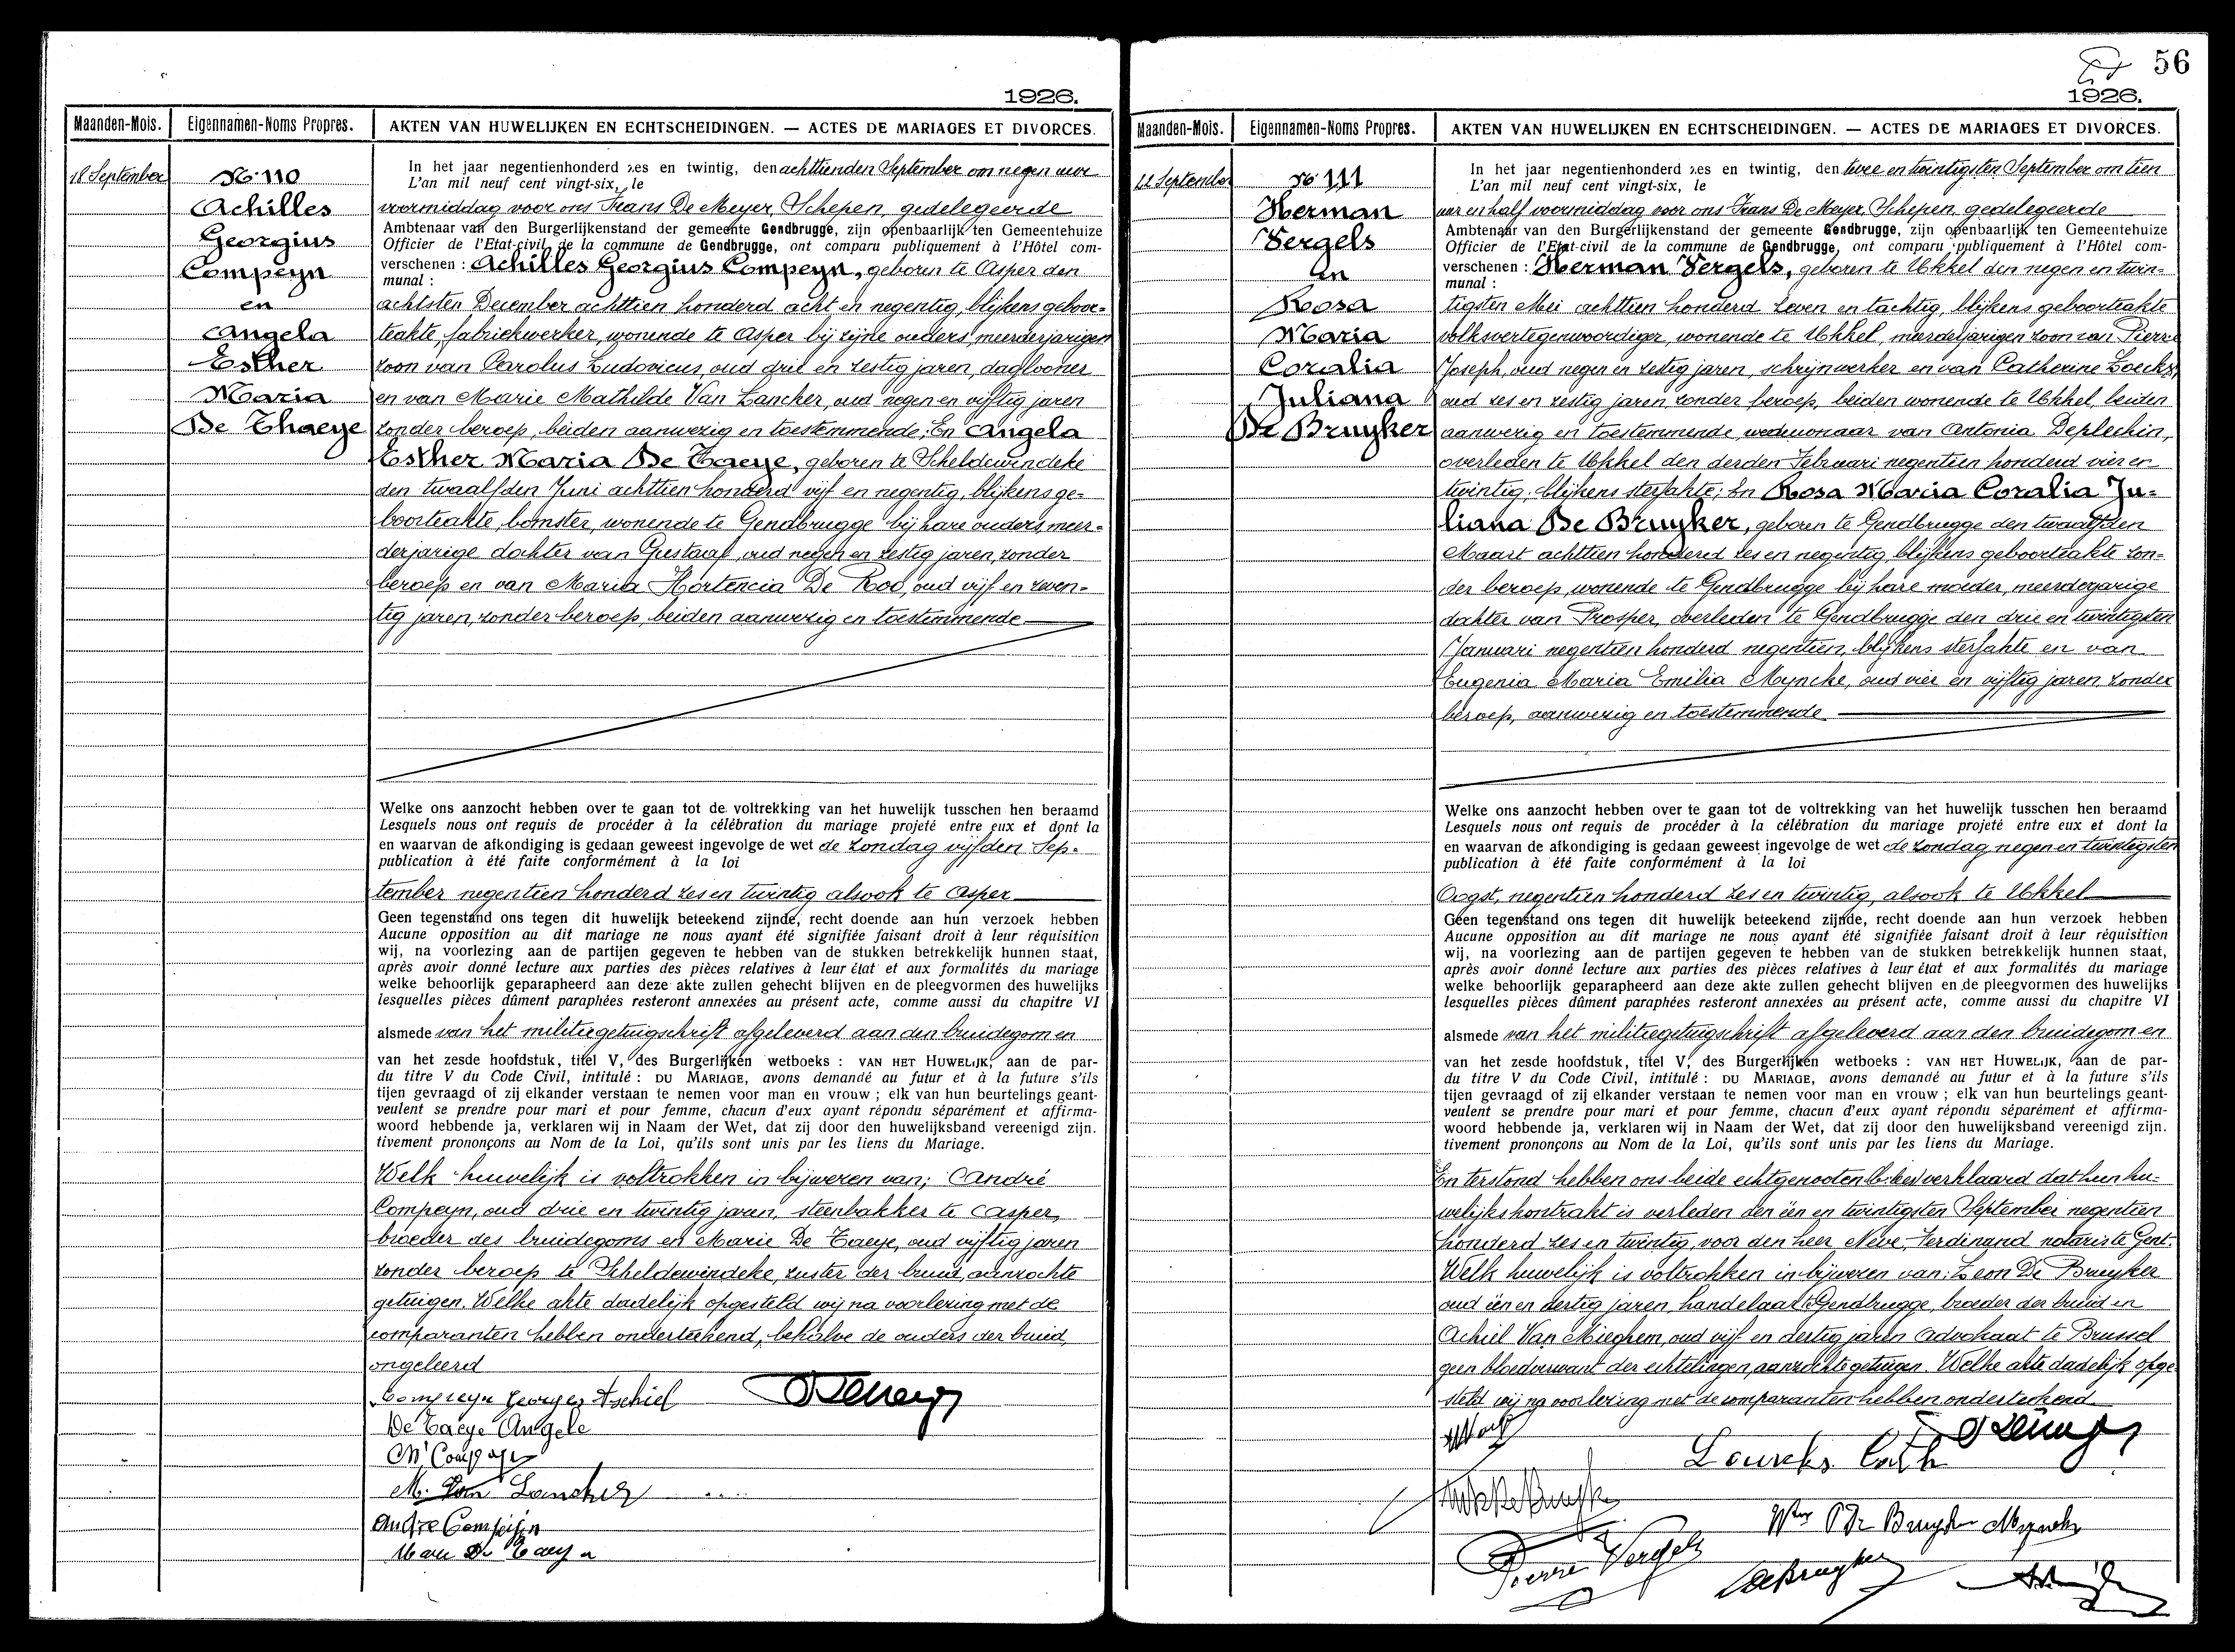 1926.
Maanden-Mois.
Eigennamen-Noms Propres.
AKTEN VAN HUWELIJKEN EN ECHTSCHEIDINGEN. — ACTES DE MARIAGES ET DIVORCES.
18 September
No 110
Achilles
Georgius
Compeyn
en
Angela
Esther
Maria
De Thaeye
In het jaar negentienhonderd zes en twintig, den achttienden September om negen uur
L'an mil neuf cent vingt-six, le
voormiddag voor ons Frans De Meyer, Schepen, gedelegeerde
Ambtenaar van den Burgerlijkenstand der gemeente Gendbrugge, zijn openbaarlijk ten Gemeentehuize
Officier de l'Etat-civil de la commune de Gendbrugge, ont comparu publiquement à l'Hôtel com-
verschenen : Achilles Georgius Compeyn, geboren te Asper den
munal :
achtsten December achttien honderd acht en negentig, blijkens geboor-
teakte, fabriekwerker, wonende te Asper bij zijne ouders, meerderjarigen
zoon van Carolus Ludovicus, oud drie en zestig jaren, daglooner
en van Marie Mathilde Van Lancker, oud negen en vijftig jaren
zonder beroep, beiden aanwezig en toestemmende; En Angela
Esther Maria De Taeye, geboren te Scheldewindeke
den twaalfden Juni achttien honderd vijf en negentig, blijkens ge-
boorteakte, bomster, wonende te Gendbrugge bij hare ouders, meer-
derjarige dochter van Gustaaf, oud negen en zestig jaren, zonder
beroep en van Maria Hortencia De Roo, oud vijf en zeven-
tig jaren, zonder beroep, beiden aanwezig en toestemmende
Welke ons aanzocht hebben over te gaan tot de voltrekking van het huwelijk tusschen hen beraamd
Lesquels nous ont requis de procéder à la célébration du mariage projeté entre eux et dont la
en waarvan de afkondiging is gedaan geweest ingevolge de wet de zondag vijfden Sep-
publication à été faite conformément à la loi
tember negentien honderd zes en twintig alsook te Asper
Geen tegenstand ons tegen dit huwelijk beteekend zijnde, recht doende aan hun verzoek hebben
Aucune opposition au dit mariage ne nous ayant été signifiée faisant droit à leur réquisition
wij, na voorlezing aan de partijen gegeven te hebben van de stukken betrekkelijk hunnen staat,
après avoir donné lecture aux parties des pièces relatives à leur état et aux formalités du mariage
welke behoorlijk geparapheerd aan deze akte zullen gehecht blijven en de pleegvormen des huwelijks
lesquelles pièces dûment paraphées resteront annexées au présent acte, comme aussi du chapitre VI
alsmede van het militiegetuigschrift afgeleverd aan den bruidegom en
van het zesde hoofdstuk, titel V, des Burgerlijken wetboeks : VAN HET HUWELIJK, aan de par-
du titre V du Code Civil, intitulé : DU MARIAGE, avons demandé au futur et à la future s'ils
tijen gevraagd of zij elkander verstaan te nemen voor man en vrouw ; elk van hun beurtelings geant-
veulent se prendre pour mari et pour femme, chacun d'eux ayant répondu séparément et affirma-
woord hebbende ja, verklaren wij in Naam der Wet, dat zij door den huwelijksband vereenigd zijn.
tivement prononçons au Nom de la Loi, qu'ils sont unis par les liens du Mariage.
Welk huwelijk is voltrokken in bijwezen van; André
Compeyn, oud drie en twintig jaren, steenbakker te Asper,
broeder des bruidegoms en Marie De Taeye, oud vijftig jaren
zonder beroep te Scheldewindeke, zuster der bruid, aanzochte
getuigen. Welke akte dadelijk opgesteld wij na voorlezing met de
comparanten hebben onderteekend, behalve de ouders der bruid,
ongeleerd
Compeyn Georges Aschiel
De Taeye Angele
M. Van Lancker
André Compeijn
Marie De Taeye
56
1926.
Maanden-Mois.
Eigennamen-Noms Propres.
AKTEN VAN HUWELIJKEN EN ECHTSCHEIDINGEN. — ACTES DE MARIAGES ET DIVORCES.
22 September
No 111
Herman
Vergels
en
Rosa
Maria
Coralia
Juliana
De Bruyker
In het jaar negentienhonderd zes en twintig, den twee en twintigsten September om tien
L'an mil neuf cent vingt-six, le
uur en half voormiddag voor ons Frans De Meyer, Schepen, gedelegeerde
Ambtenaar van den Burgerlijkenstand der gemeente Gendbrugge, zijn openbaarlijk ten Gemeentehuize
Officier de l'Etat-civil de la commune de Gendbrugge, ont comparu publiquement à l'Hôtel com-
verschenen : Herman Vergels, geboren te Ukkel den negen en twin-
munal :
tigsten Mei achttien honderd zeven en tachtig, blijkens geboorteakte
volksvertegenwoordiger, wonende te Ukkel, meerderjarigen zoon van Pierre
Joseph, oud negen en zestig jaren, schrijnwerker en van Catherine Loeckx,
oud zes en zestig jaren, zonder beroep, beiden wonende te Ukkel, beiden
aanwezig en toestemmende, weduwnaar van Antonia Deplechin,
overleden te Ukkel den derden Februari negentien honderd vier en
twintig, blijkens sterfakte; En Rosa Maria Coralia Ju-
liana De Bruyker, geboren te Gendbrugge den twaalfden
Maart achttien honderd zes en negentig, blijkens geboorteakte zon-
der beroep, wonende te Gendbrugge bij hare moeder, meerderjarige
dochter van Prosper, overleden te Gendbrugge den drie en twintigsten
Januari negentien honderd negentien, blijkens sterfakte en van
Eugenia Maria Emilia Myncke, oud vier en vijftig jaren, zonder
beroep, aanwezig en toestemmende
Welke ons aanzocht hebben over te gaan tot de voltrekking van het huwelijk tusschen hen beraamd
Lesquels nous ont requis de procéder à la célébration du mariage projeté entre eux et dont la
en waarvan de afkondiging is gedaan geweest ingevolge de wet de zondag negen en twintigsten
publication à été faite conformément à la loi
Oogst, negentien honderd zes en twintig, alsook te Ukkel
Geen tegenstand ons tegen dit huwelijk beteekend zijnde, recht doende aan hun verzoek hebben
Aucune opposition au dit mariage ne nous ayant été signifiée faisant droit à leur réquisition
wij, na voorlezing aan de partijen gegeven te hebben van de stukken betrekkelijk hunnen staat,
après avoir donné lecture aux parties des pièces relatives à leur état et aux formalités du mariage
welke behoorlijk geparapheerd aan deze akte zullen gehecht blijven en de pleegvormen des huwelijks
lesquelles pièces dûment paraphées resteront annexées au présent acte, comme aussi du chapitre VI
alsmede van het militiegetuigschrift afgeleverd aan den bruidegom en
van het zesde hoofdstuk, titel V, des Burgerlijken wetboeks : VAN HET HUWELIJK, aan de par-
du titre V du Code Civil, intitulé : DU MARIAGE, avons demandé au futur et à la future s'ils
tijen gevraagd of zij elkander verstaan te nemen voor man en vrouw ; elk van hun beurtelings geant-
veulent se prendre pour mari et pour femme, chacun d'eux ayant répondu séparément et affirma-
woord hebbende ja, verklaren wij in Naam der Wet, dat zij door den huwelijksband vereenigd zijn.
tivement prononçons au Nom de la Loi, qu'ils sont unis par les liens du Mariage.
En terstond hebben ons beide echtgenooten verklaard dat hun hu-
welijkskontrakt is verleden den één en twintigsten September negentien
honderd zes en twintig, voor den heer Neve, Ferdinand notaris te Gent.
Welk huwelijk is voltrokken in bijwezen van: Leon De Bruyker
oud één en dertig jaren, handelaar te Gendbrugge, broeder der bruid en
Achiel Van Mieghem, oud vijf en dertig jaren advokaat te Brussel
geen bloedverwant der echtelingen, aanzochte getuigen. Welke akte dadelijk opge-
steld wij na voorlezing met de comparanten hebben onderteekend.
Louckx Cath
Wwe De Bruyker Myncke
Pierre Vergels
DeBruyker